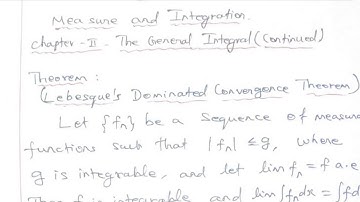 Measure and Integration.
Chapter-II. The General Integral (Continued)
Theorem:
(Lebesgue's Dominated Convergence Theorem)
Let {fn} be a sequence of measura
functions such that |fn| ≤ g, where
g is integrable, and let lim fn = f a.e
Then f is integrable and lim ∫fn dx = ∫fd